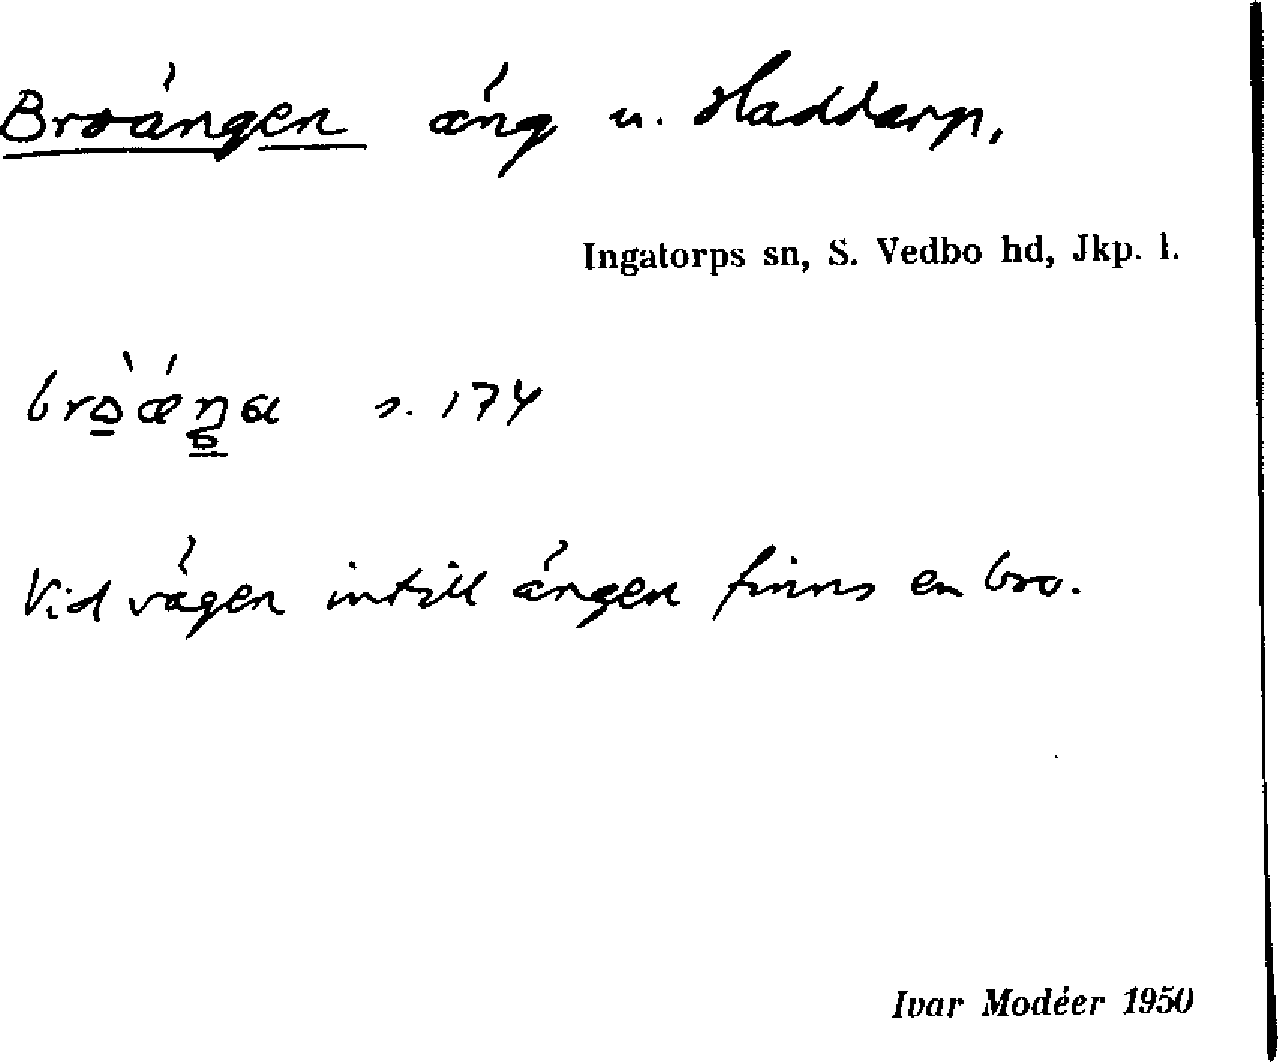 Broängen äng u. Haddarp,
Ingatorps sn, S. Vedbo hd, Jkp. l.
s. 174
Vid vägen intill ängen finns en bro.
Ivar Modéer 1950